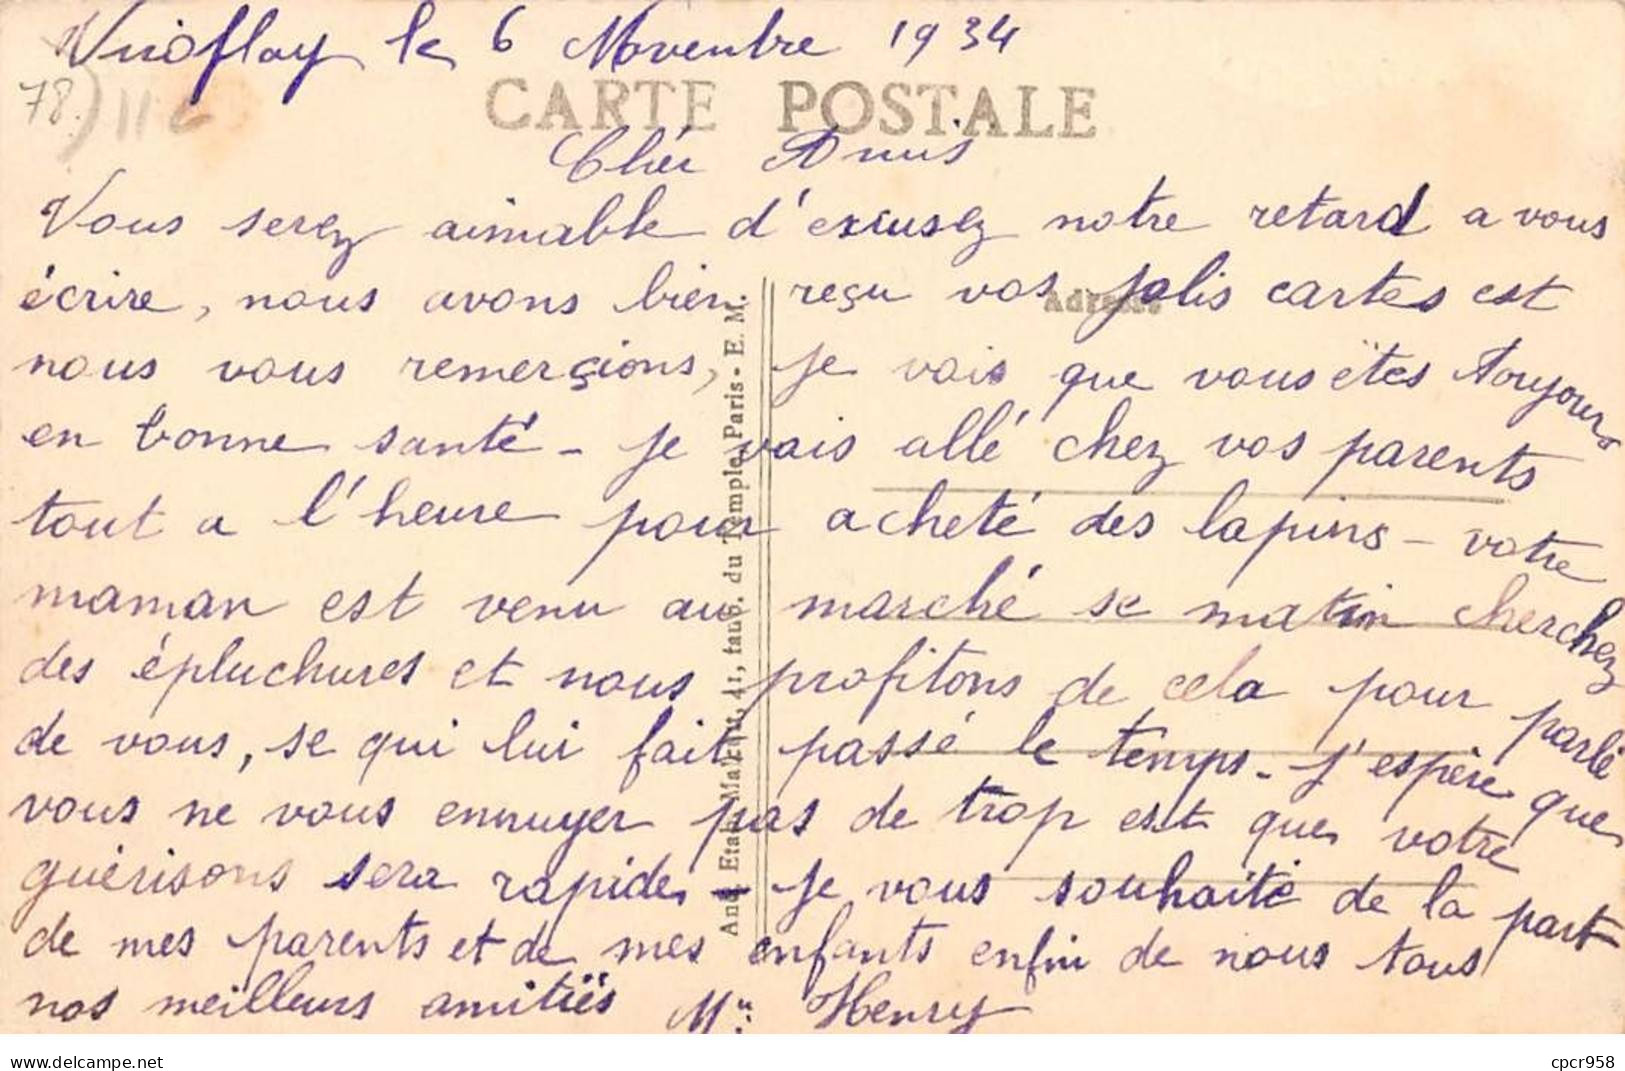 Viroflay le 6 Novembre 1934
78.
CARTE POSTALE
Chér Amis
Vous serez aimable d'excusez notre retard a vous
écrire, nous avons bien reçu vos jolis cartes est
Adresse
nous vous remerçions, je vois que vous étes toujours
en bonne santé - je vais allé chez vos parents
tout a l'heure pour acheté des lapins - votre
maman est venu au marché se matin cherchez
des épluchures et nous profitons de cela pour parlé
de vous, se qui lui fait passé le temps - j'espère que
vous ne vous ennuyer pas de trop est que votre
guérisons sera rapide - je vous souhaite de la part
de mes parents et de mes enfants enfin de nous tous
nos meilleurs amitiés Mn: Henry
du Temple, Paris - E. M.
cpcr958